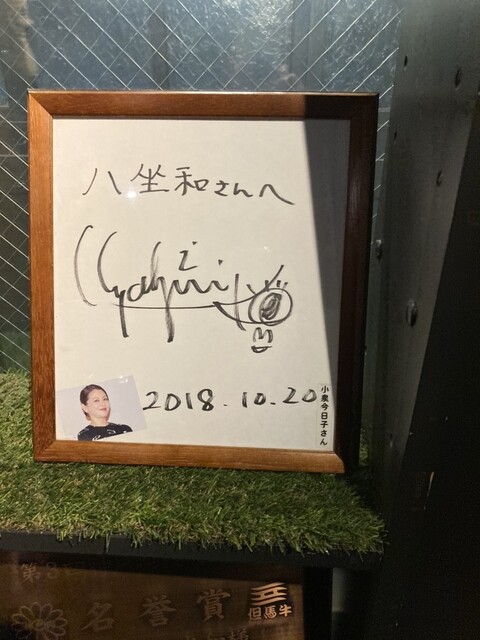 八坐和さんへ
2018.10.20
小泉今日子さん
第3回
名誉賞
但馬牛